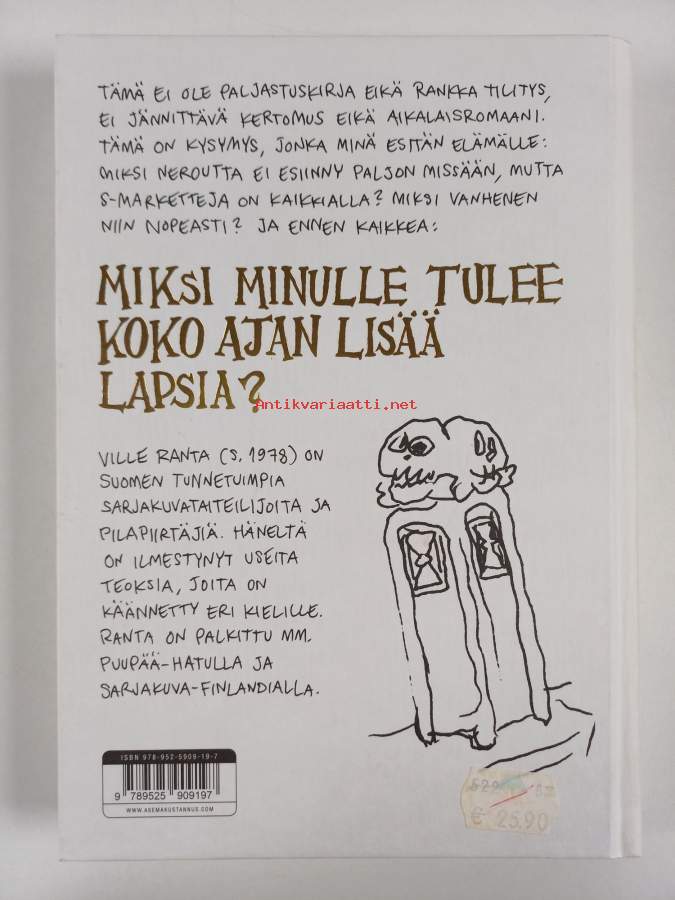 TÄMÄ EI OLE PALJASTUSKIRJA EIKÄ RANKKA TILITYS,
EI JÄNNITTÄVÄ KERTOMUS EIKÄ AIKALAISROMAANI.
TÄMÄ ON KYSYMYS, JONKA MINÄ ESITÄN ELÄMÄLLE:
MIKSI NEROUTTA EI ESIINNY PALJON MISSÄÄN, MUTTA
S-MARKETTEJA ON KAIKKIALLA? MIKSI VANHENEN
NIIN NOPEASTI? JA ENNEN KAIKKEA:
MIKSI MINULLE TULEE
KOKO AJAN LISÄÄ
LAPSIA?
Antikvariaatti.net
VILLE RANTA (S. 1978) ON
SUOMEN TUNNETUIMPIA
SARJAKUVATAITEILIJOITA JA
PILAPIIRTÄJIÄ. HÄNELTÄ
ON ILMESTYNYT USEITA
TEOKSIA, JOITA ON
KÄÄNNETTY ERI KIELILLE.
RANTA ON PALKITTU MM.
PUUPÄÄ-HATULLA JA
SARJAKUVA-FINLANDIALLA.
ISBN 978-952-5909-19-7
9 789525 909197
WWW.ASEMAKUSTANNUS.COM
€ 25,90